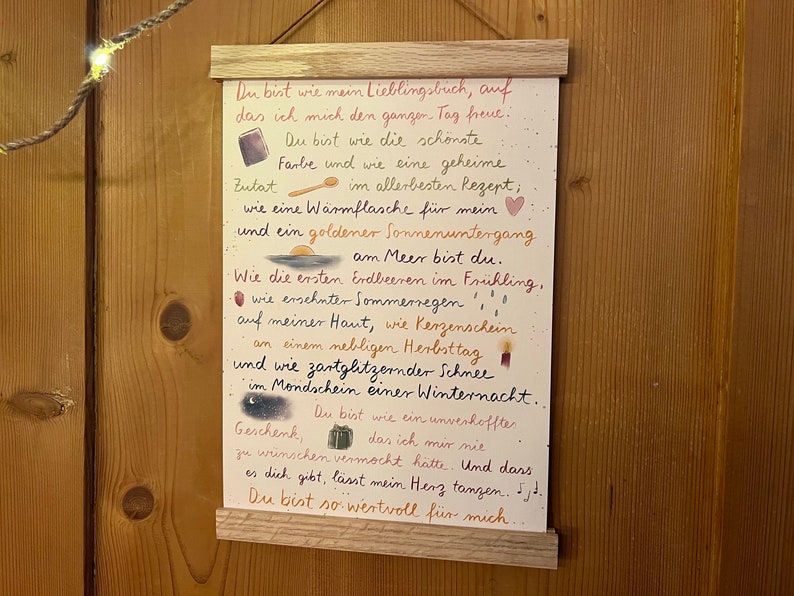 Du bist wie mein Lieblingsbuch, auf
das ich mich den ganzen Tag freue.
Du bist wie die schönste
Farbe und wie eine geheime
Zutat im allerbesten Rezept;
wie eine Wärmflasche für mein
und ein goldener Sonnenuntergang
am Meer bist du.
Wie die ersten Erdbeeren im Frühling,
wie ersehnter Sommerregen
auf meiner Haut, wie Kerzenschein
an einem nebligen Herbsttag
und wie zartglitzernder Schnee
im Mondschein einer Winternacht.
Du bist wie ein unverhofftes
Geschenk, das ich mir nie
zu wünschen vermocht hätte. Und dass
es dich gibt, lässt mein Herz tanzen.
Du bist so wertvoll für mich.